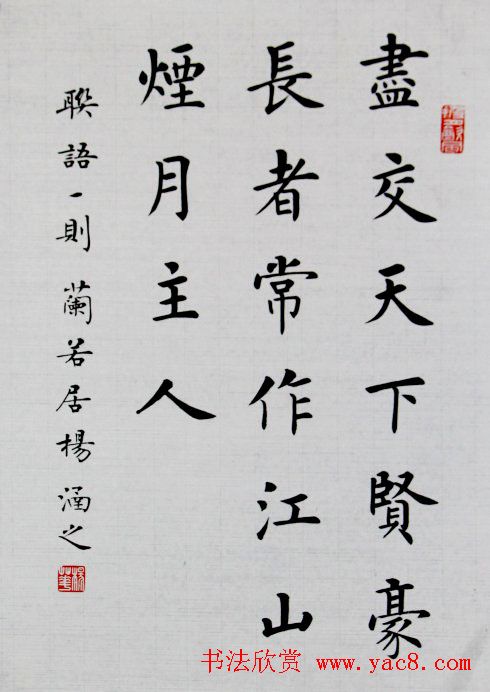 盡交天下賢豪
長者常作江山
煙月主人
聯語一則蘭若居楊涵之
书法欣赏 www.yac8.com